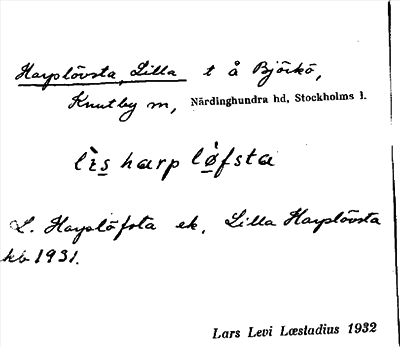 Harplövsta, Lilla t å Björkö,
Knutby sn, Närdinghundra hd, Stockholms l.
lìs harp lø̀fsta
L. Harplöfsta ek. Lilla Harplövsta
kb 1931.
Lars Levi Læstadius 1932